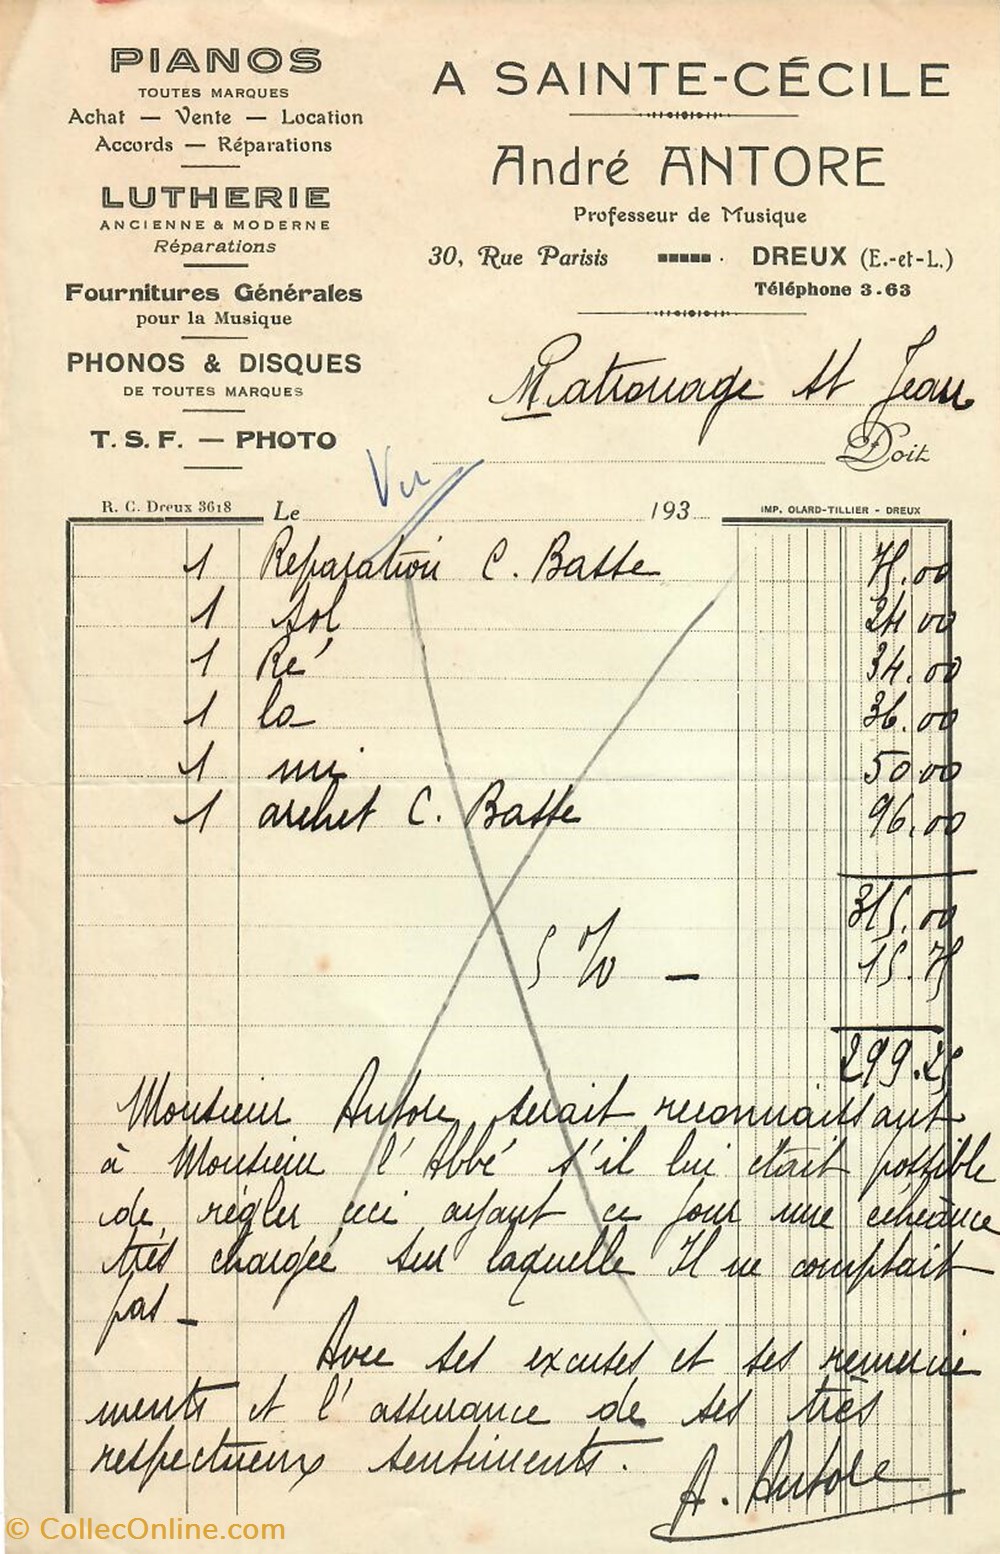 PIANOS
TOUTES MARQUES
Achat — Vente — Location
Accords — Réparations
LUTHERIE
ANCIENNE & MODERNE
Réparations
Fournitures Générales
pour la Musique
PHONOS & DISQUES
DE TOUTES MARQUES
T. S. F. — PHOTO
A SAINTE-CÉCILE
André ANTORE
Professeur de Musique
30, Rue Parisis DREUX (E.-et-L.)
Téléphone 3.63
Patronage St Jean
Doit
Vu
R. C. Dreux 3618 Le 193 IMP. OLARD-TILLIER - DREUX
1 Reparation C. Basse 75.00
1 Sol 24.00
1 Ré 34.00
1 la 36.00
1 mi 50.00
1 archet C. Basse 96.00
315.00
5 % — 15.75
299.25
Monsieur Antore serait reconnaissant
à Monsieur l'Abbé s'il lui était possible
de régler ceci ayant ce jour une échéance
très chargée sur laquelle Il ne comptait
pas —
Avec ses excuses et ses remercie
ments et l'assurance de ses très
respectueux sentiments.
A. Antore
© CollecOnline.com